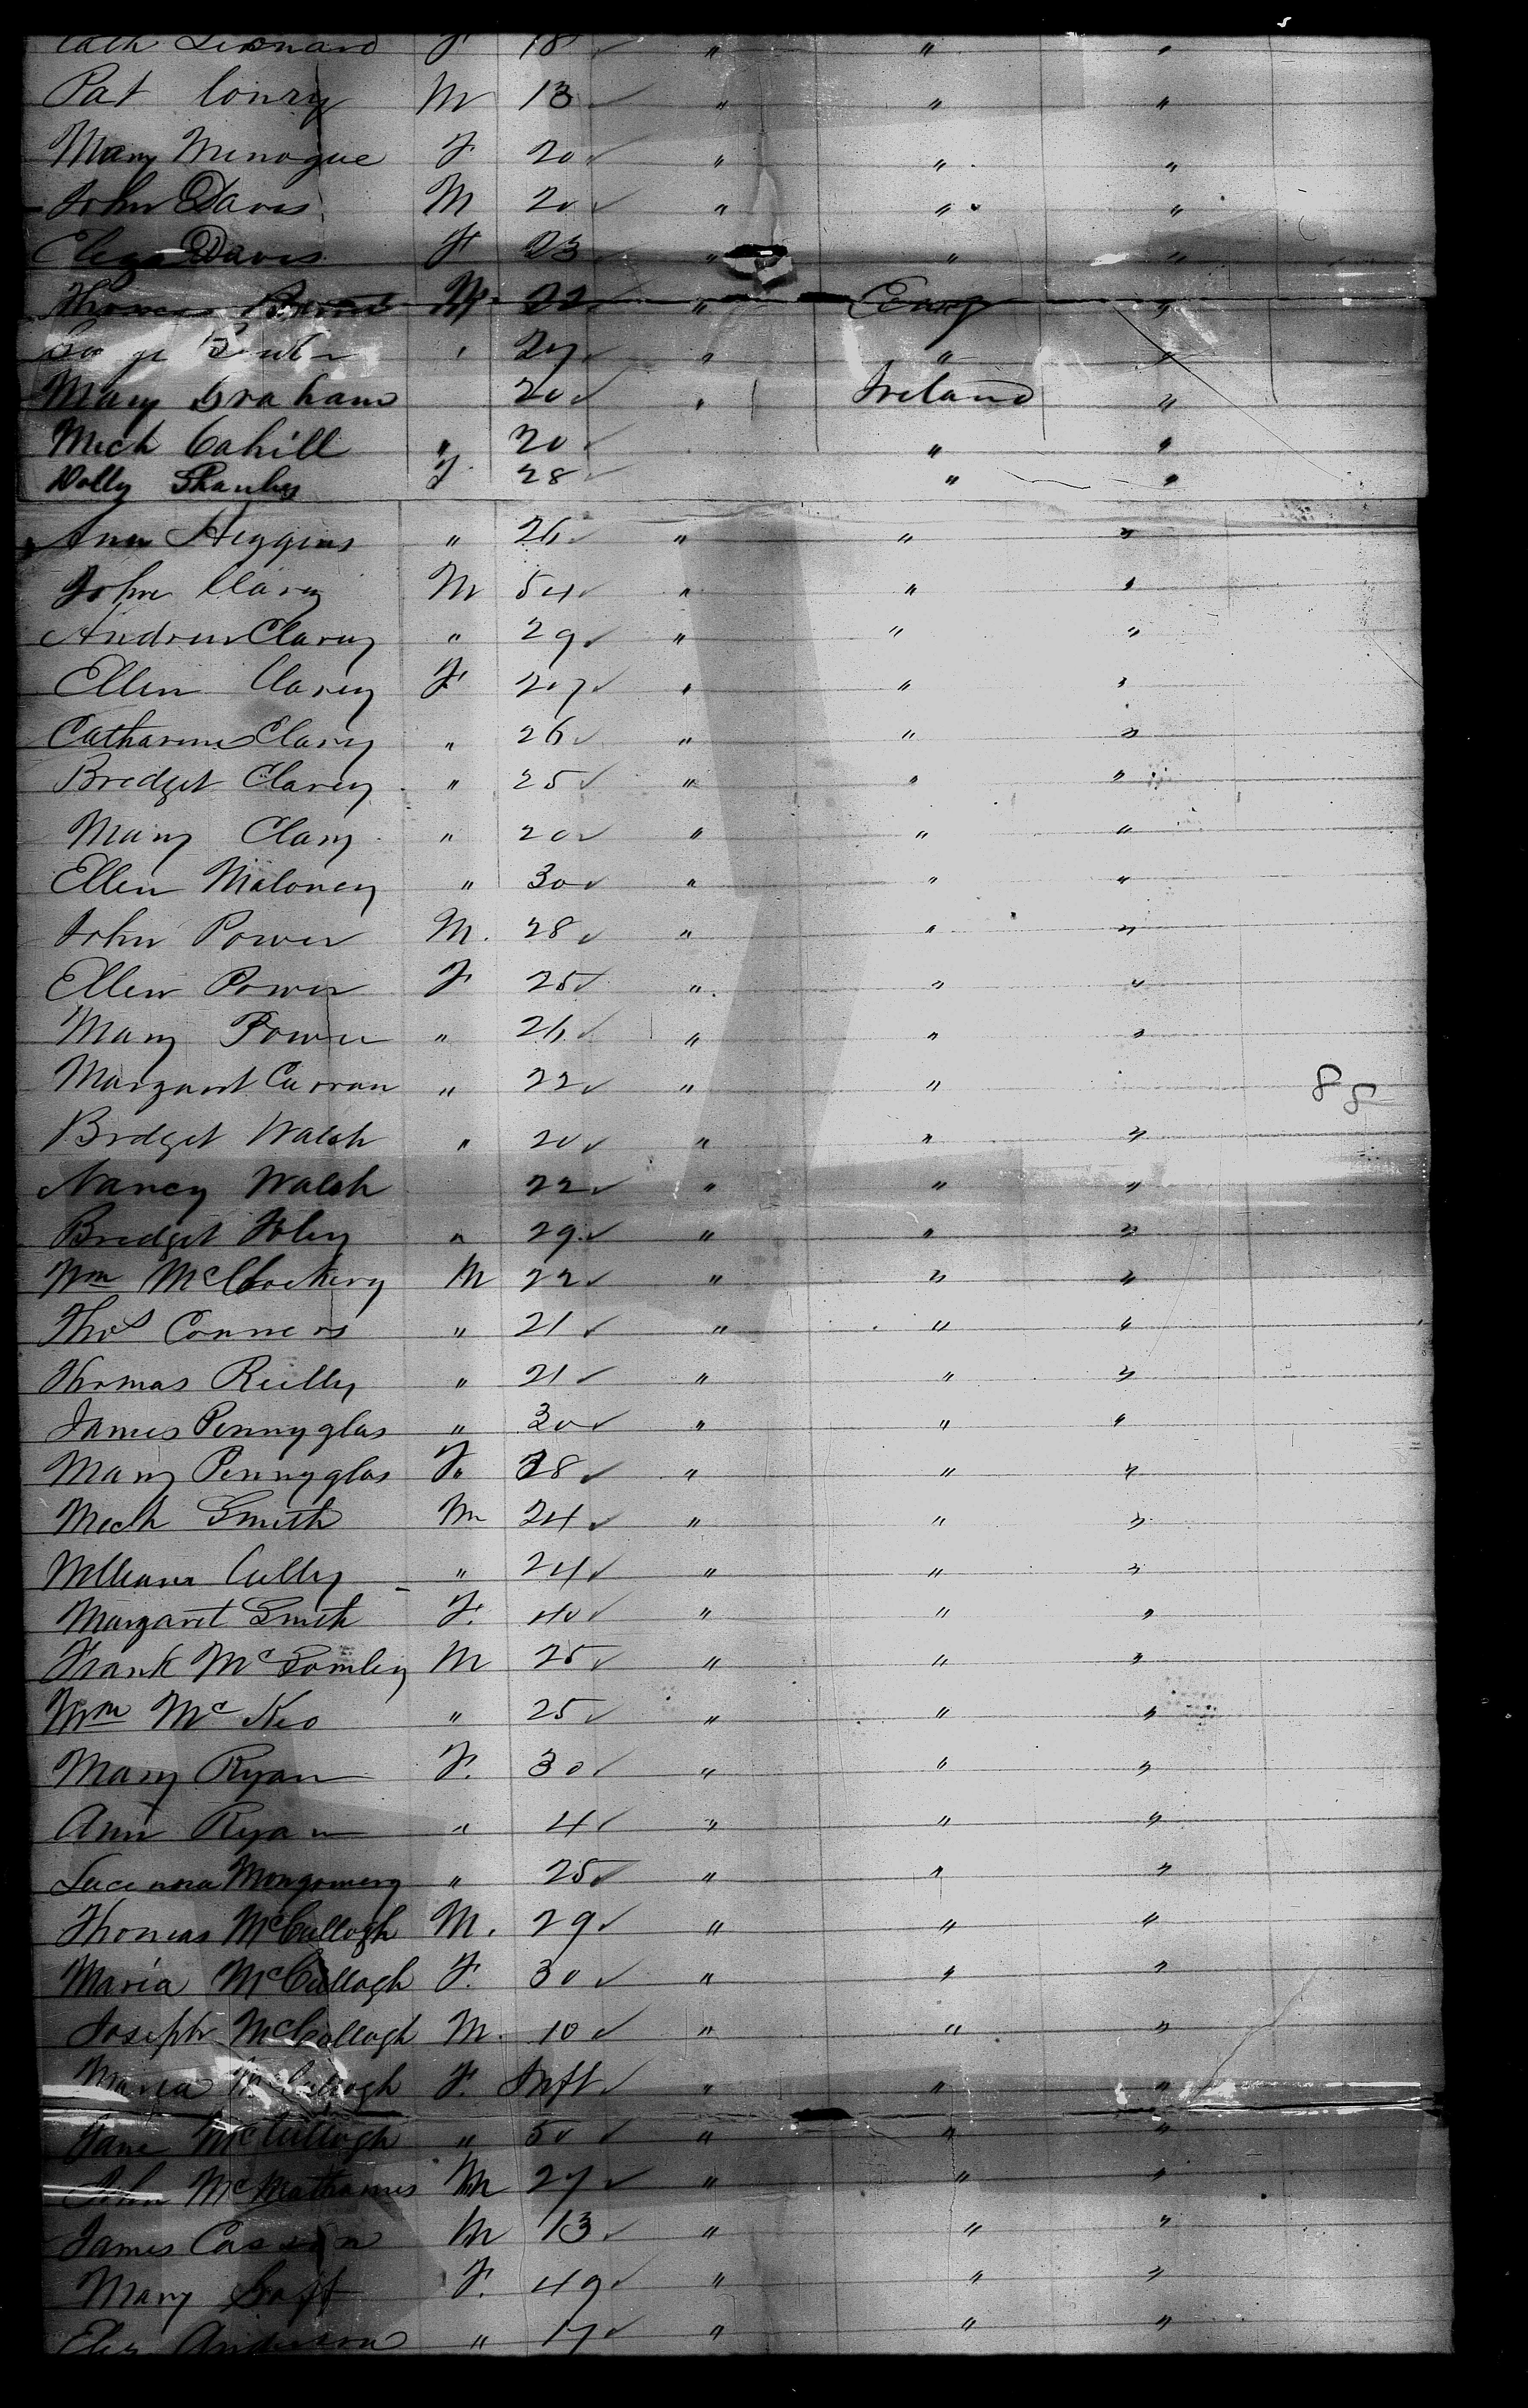 Cath Leonard F 18 ✓ " " "
Pat Conry M 13 ✓ " " "
Mary Minogue F 20 ✓ " " "
John Davis M 20 ✓ " " "
Eliza Davis F 23 ✓ " " "
Thomas M 22 " Eng "
27 ✓ " " "
Mary Graham 20 ✓ " Ireland "
Mich Cahill " 20 ✓ " "
Dolly Shanley F 28 ✓ " "
Ann Higgins " 26 ✓ " " "
John Clarey M 54 ✓ " " "
Andrew Clarey " 29 ✓ " " "
Ellen Clarey F 27 ✓ " " "
Catharine Clary " 26 ✓ " " "
Bredget Clarey " 25 ✓ " " "
Mary Clary " 20 ✓ " " "
Ellen Maloney " 30 ✓ " " "
John Power M. 28 ✓ " " "
Ellen Power F 25 ✓ " " "
Mary Power " 26 ✓ " " "
Margaret Curran " 22 ✓ " "
88
Bridget Walsh " 20 ✓ " " "
Nancy Walsh 22 ✓ " " "
Bredget Foley " 29 ✓ " " "
Wm McClockery M 22 ✓ " " "
Thos Conners " 21 ✓ " " "
Thomas Reilly " 21 ✓ " " "
James Pennyglas " 30 ✓ " " "
Mary Pennyglas F. 28 ✓ " " "
Mich Smith M 24 ✓ " " "
William Cully " 24 ✓ " " "
Margaret Smith F. 40 ✓ " " "
Frank McGomley M 25 ✓ " " "
Wm McKeo " 25 ✓ " " "
Mary Ryan F. 30 ✓ " " "
Ann Ryan " 4 ✓ " " "
Lucinna Montgomery " 25 ✓ " " "
Thomas McCullogh M. 29 ✓ " " "
Maria McCullogh F. 30 ✓ " " "
Joseph McCullogh M. 10 ✓ " " "
Maria McCullogh F. Inft ✓ " " "
Jane McCullogh " 50 ✓ " " "
John McMathanis M 27 ✓ " " "
James Cassin M 13 ✓ " " "
Mary Gaff F. 49 ✓ " " "
Eliz Anderson " 17 ✓ " " "